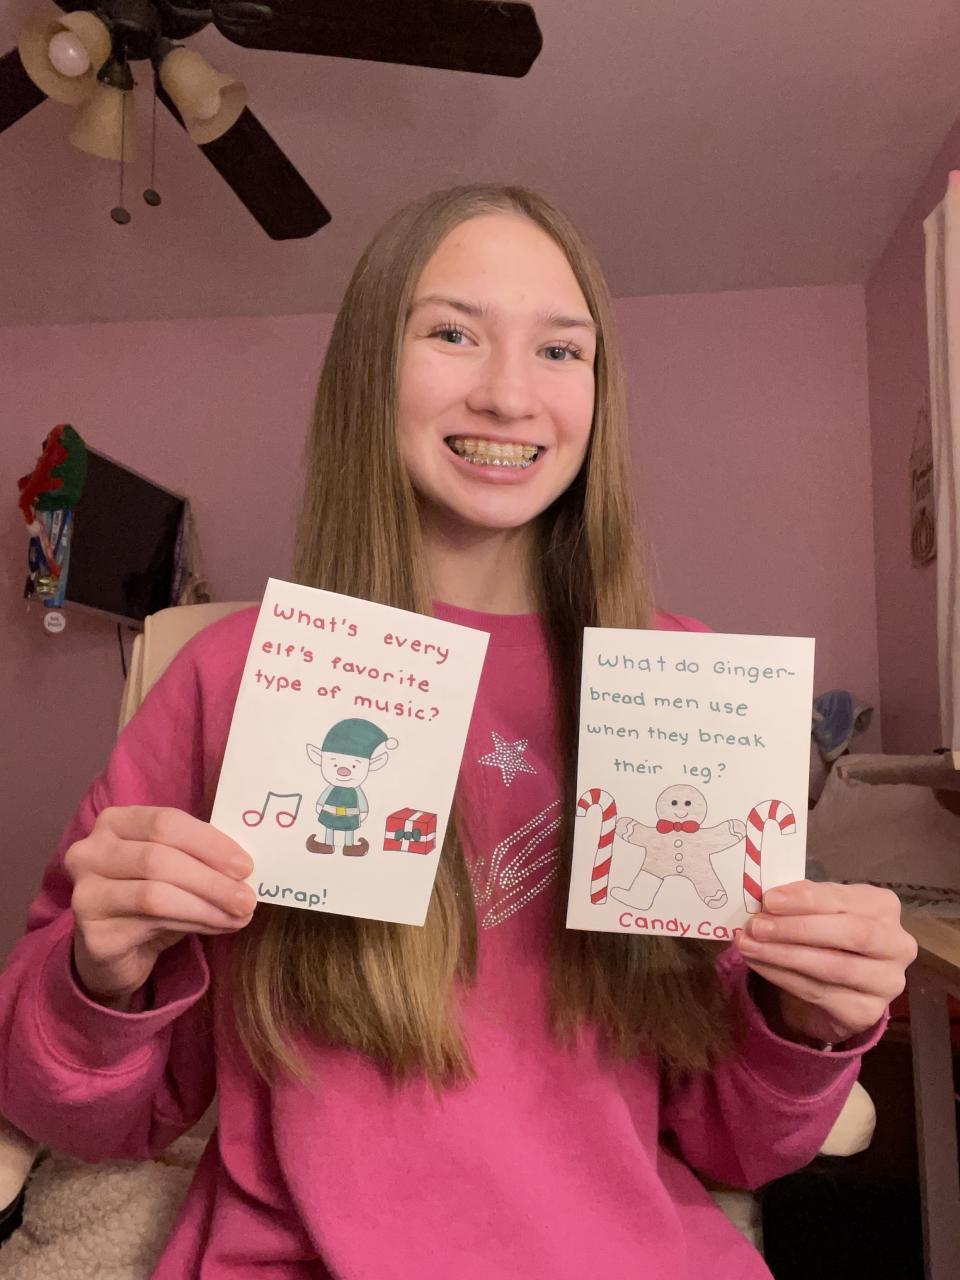 What's every
elf's favorite
type of music?
Wrap!
What do Ginger-
bread men use
when they break
their leg?
Candy